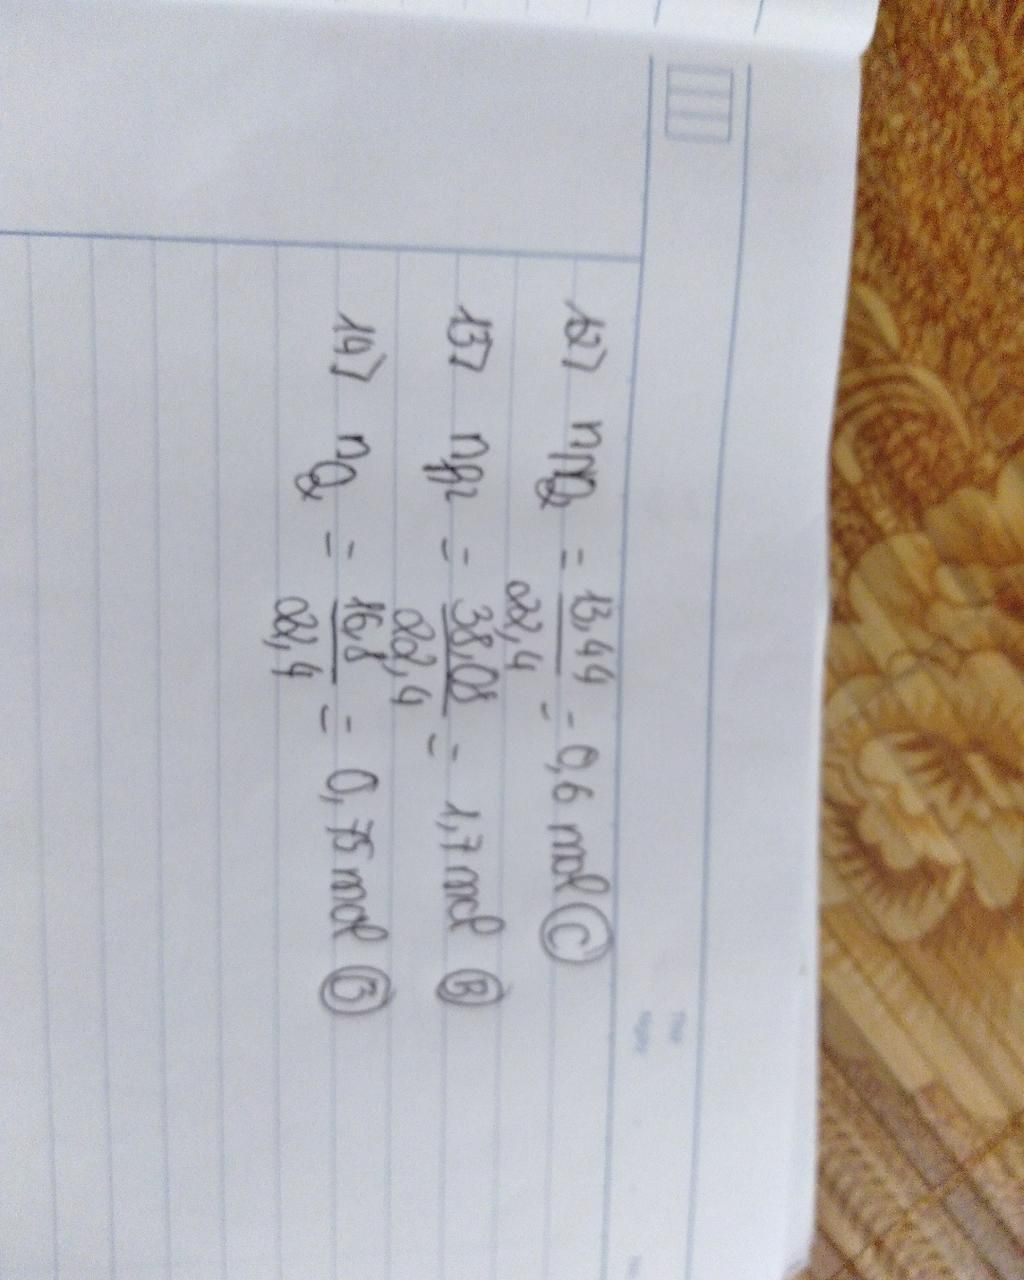 12> nNO2 = 13,44 / 22,4 = 0,6 mol C
13> nH2 = 38,08 / 22,4 = 1,7 mol B
14> nO2 = 16,8 / 22,4 = 0,75 mol B